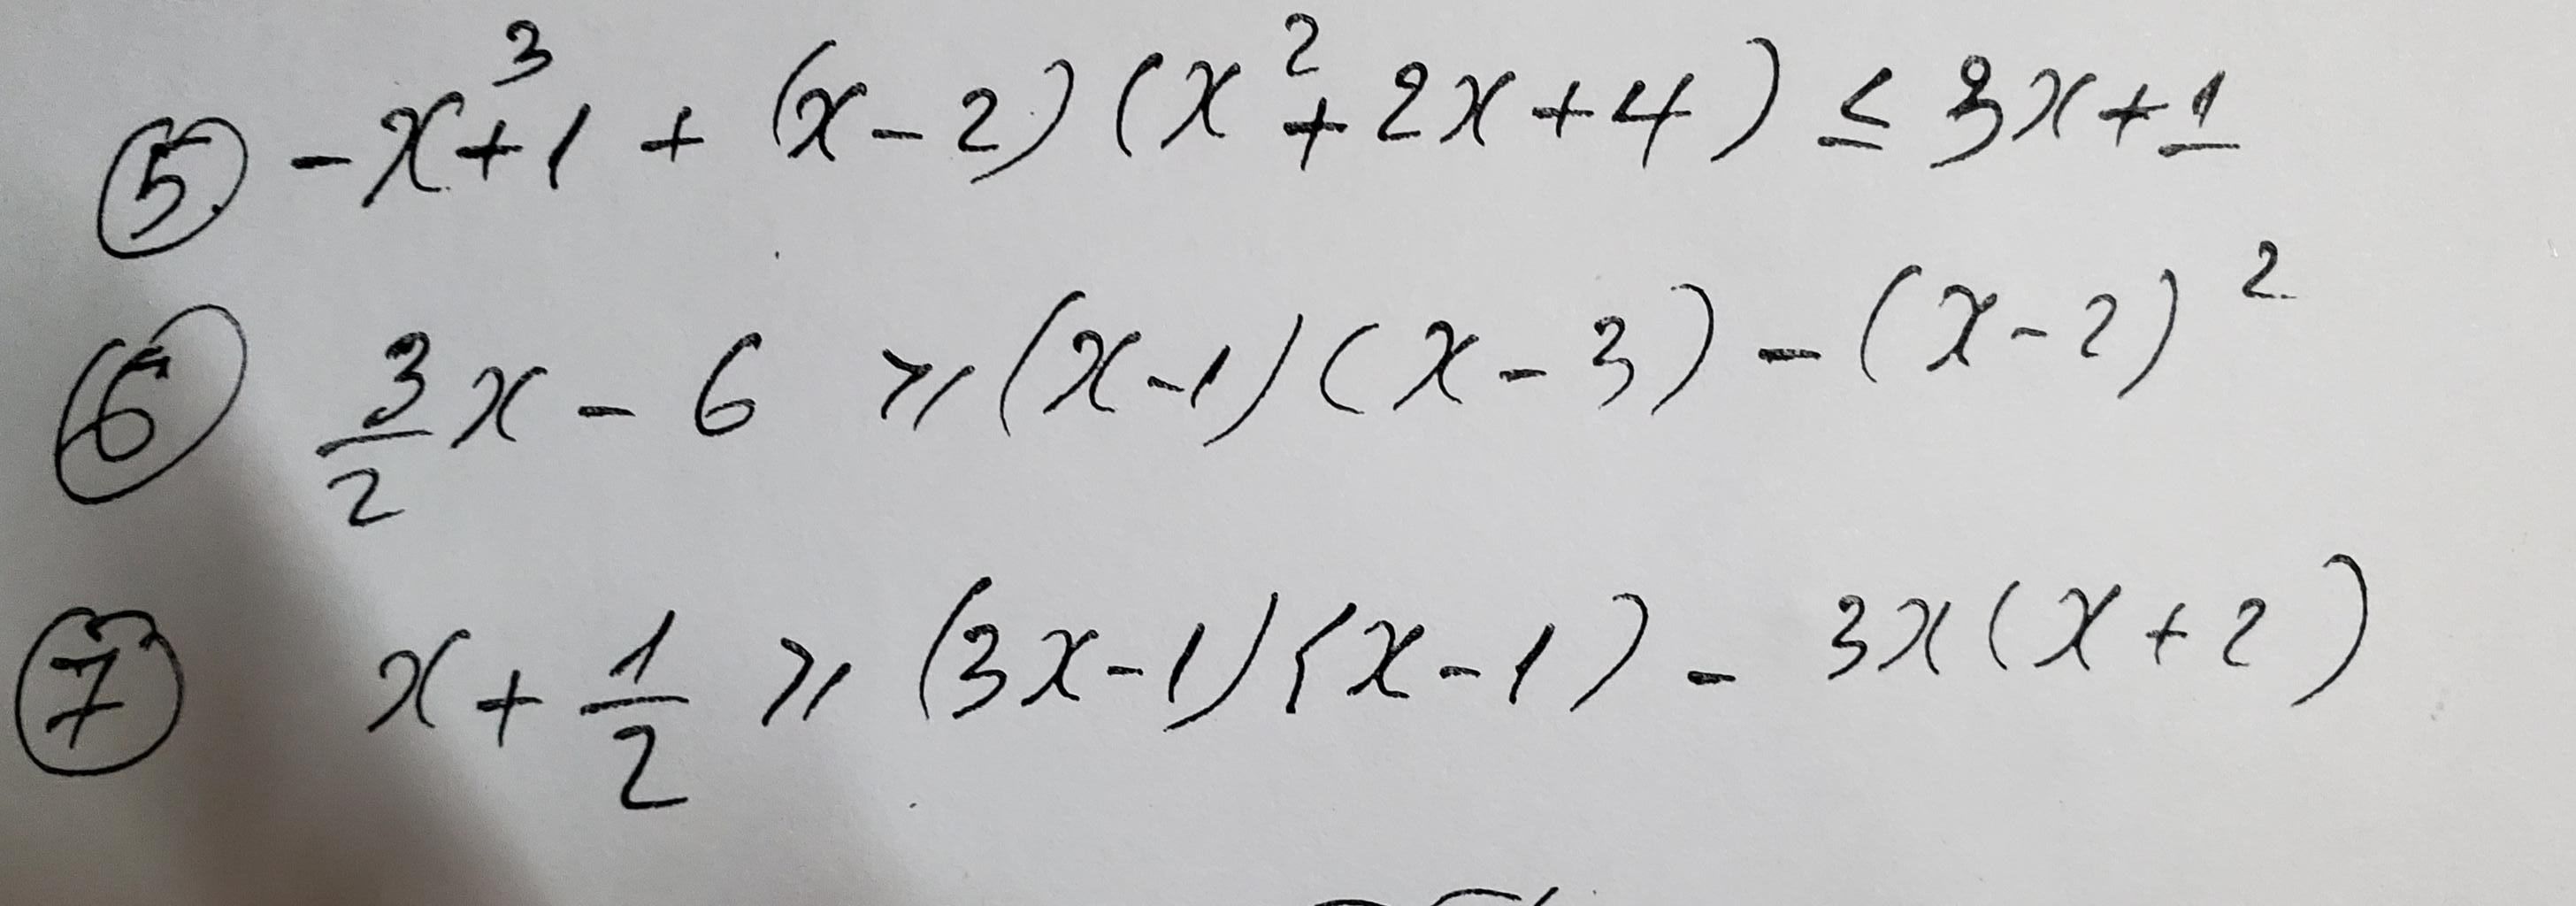 ⑤ -x³+1 + (x-2)(x²+2x+4) ≤ 3x+1
⑥ 3/2 x - 6 ≥ (x-1)(x-3) - (x-2)²
⑦ x + 1/2 ≥ (3x-1)(x-1) - 3x(x+2)